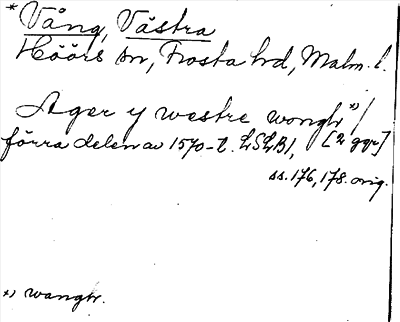 * Vång, Västra
Höörs sn, Frosta hd, Malm. l.
Ager y westre wongh x) /
förra delen av 1570-t. LSLB1, [2 ggr]
ss. 176, 178. orig.
x) wangh.